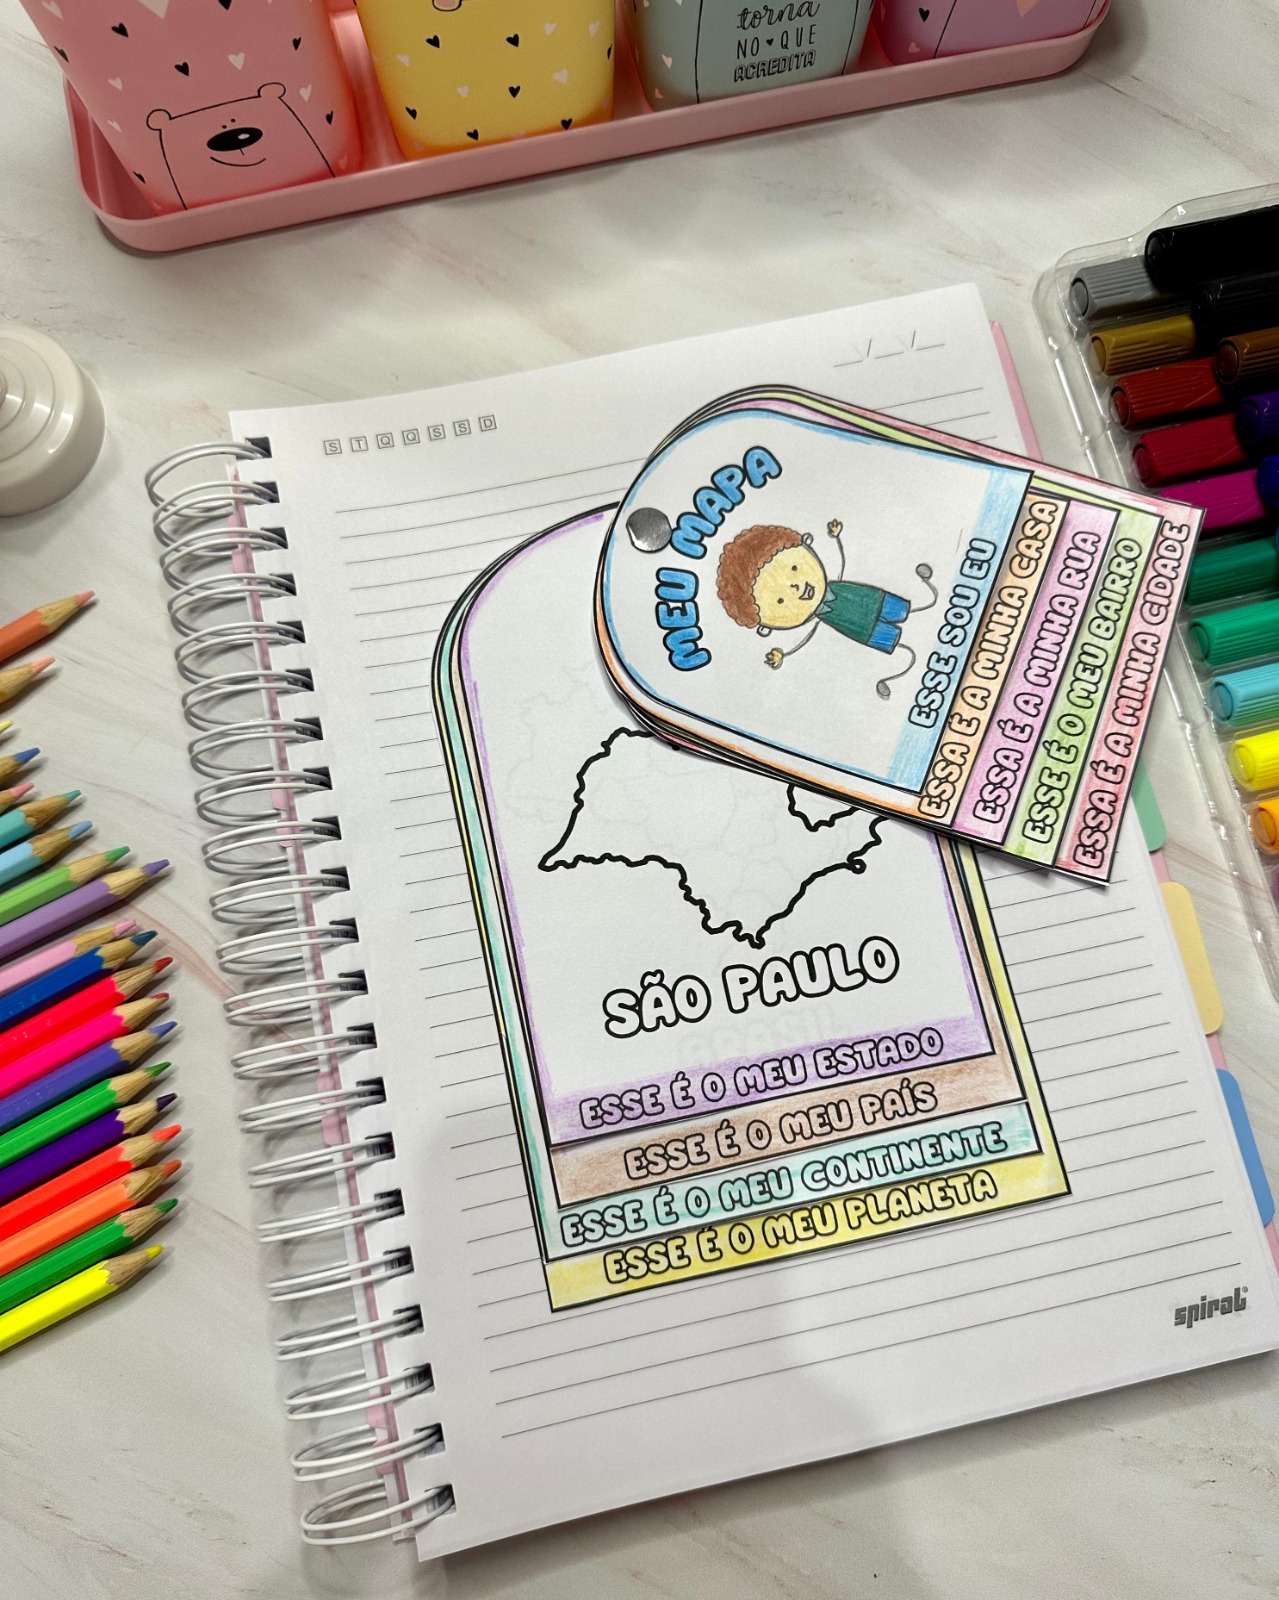 torna
NO ♥ QUE
ACREDITA
S T Q Q S S D
__/__/__
MEU MAPA
ESSE SOU EU
ESSA É A MINHA CASA
ESSA É A MINHA RUA
ESSE É O MEU BAIRRO
ESSA É A MINHA CIDADE
SÃO PAULO
ESSE É O MEU ESTADO
ESSE É O MEU PAÍS
ESSE É O MEU CONTINENTE
ESSE É O MEU PLANETA
spiral